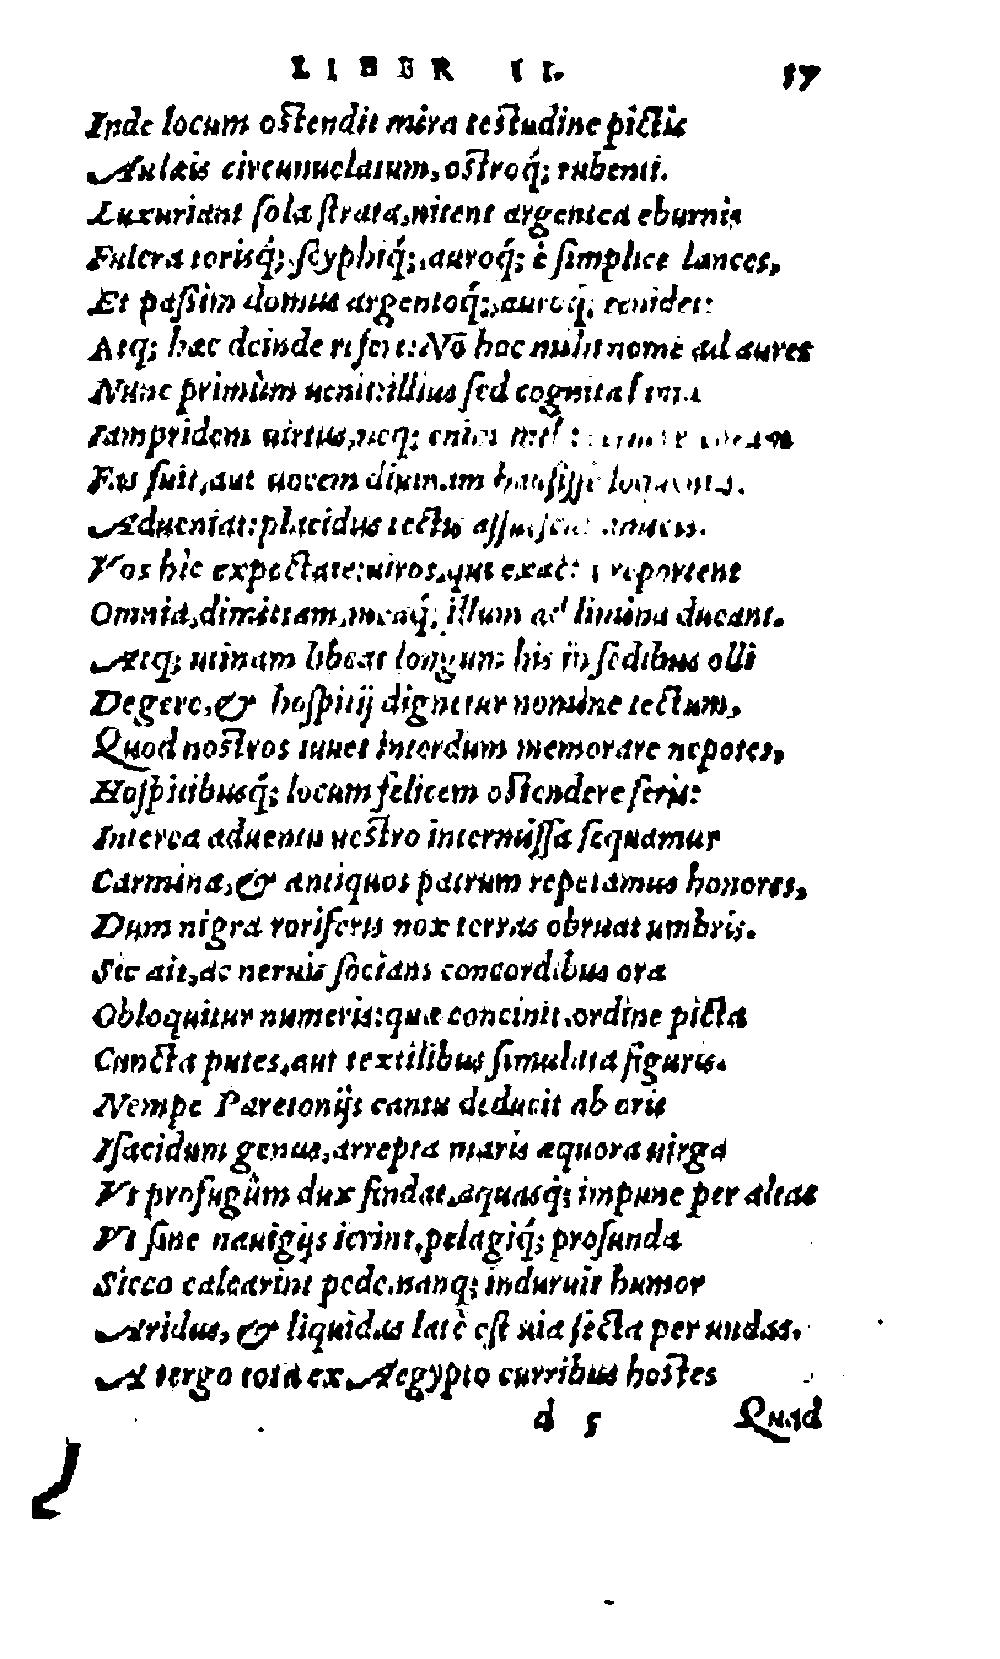 LIBER II. 57
Inde locum ostendit mira testudine pictis
Aulæis circunuelatum, ostroq́; rubenti.
Luxuriant sola strata, nitent argentea eburnis
Fulcra torisq́;, scyphiq́;, auroq́; è simplice lances,
Et passim domus argentoq́;, auroq́; renidet:
Atq; hæc deinde refert: Nō hoc mihi nomē ad aures
Nunc primùm uenit: illius sed cognita
Iampridem uirtus, neq; enim mihi
Eius fuit, aut uocem diuinam hausisse loquentis.
Adueniat: placidus tectis
Vos hîc expectate: uiros, qui reportent
Omnia, dimittam, meaq́; illum ad limina ducant.
Atq; utinam libeat longum his in sedibus olli
Degere, & hospitij dignetur nomine tectum,
Quod nostros iuuet interdum memorare nepotes,
Hospitibusq́; locum felicem ostendere seris:
Interea aduentu uestro intermissa sequamur
Carmina, & antiquos patrum repetamus honores,
Dum nigra roriferis nox terras obruat umbris.
Sic ait, ac neruis socians concordibus ora
Obloquitur numeris: quæ concinit, ordine picta
Cuncta putes, aut textilibus simulata figuris.
Nempe Paretonijs cantu deducit ab oris
Isacidum genus, arrepta maris æquora uirga
Vt profugûm dux findat, aquasq́; impune per altas
Vt sine nauigijs ierint, pelagiq́; profunda
Sicco calcarint pede, nanq; induruit humor
Aridus, & liquidas latè est uia secta per undas.
A tergo tota ex Aegypto curribus hostes
d 5 Quad